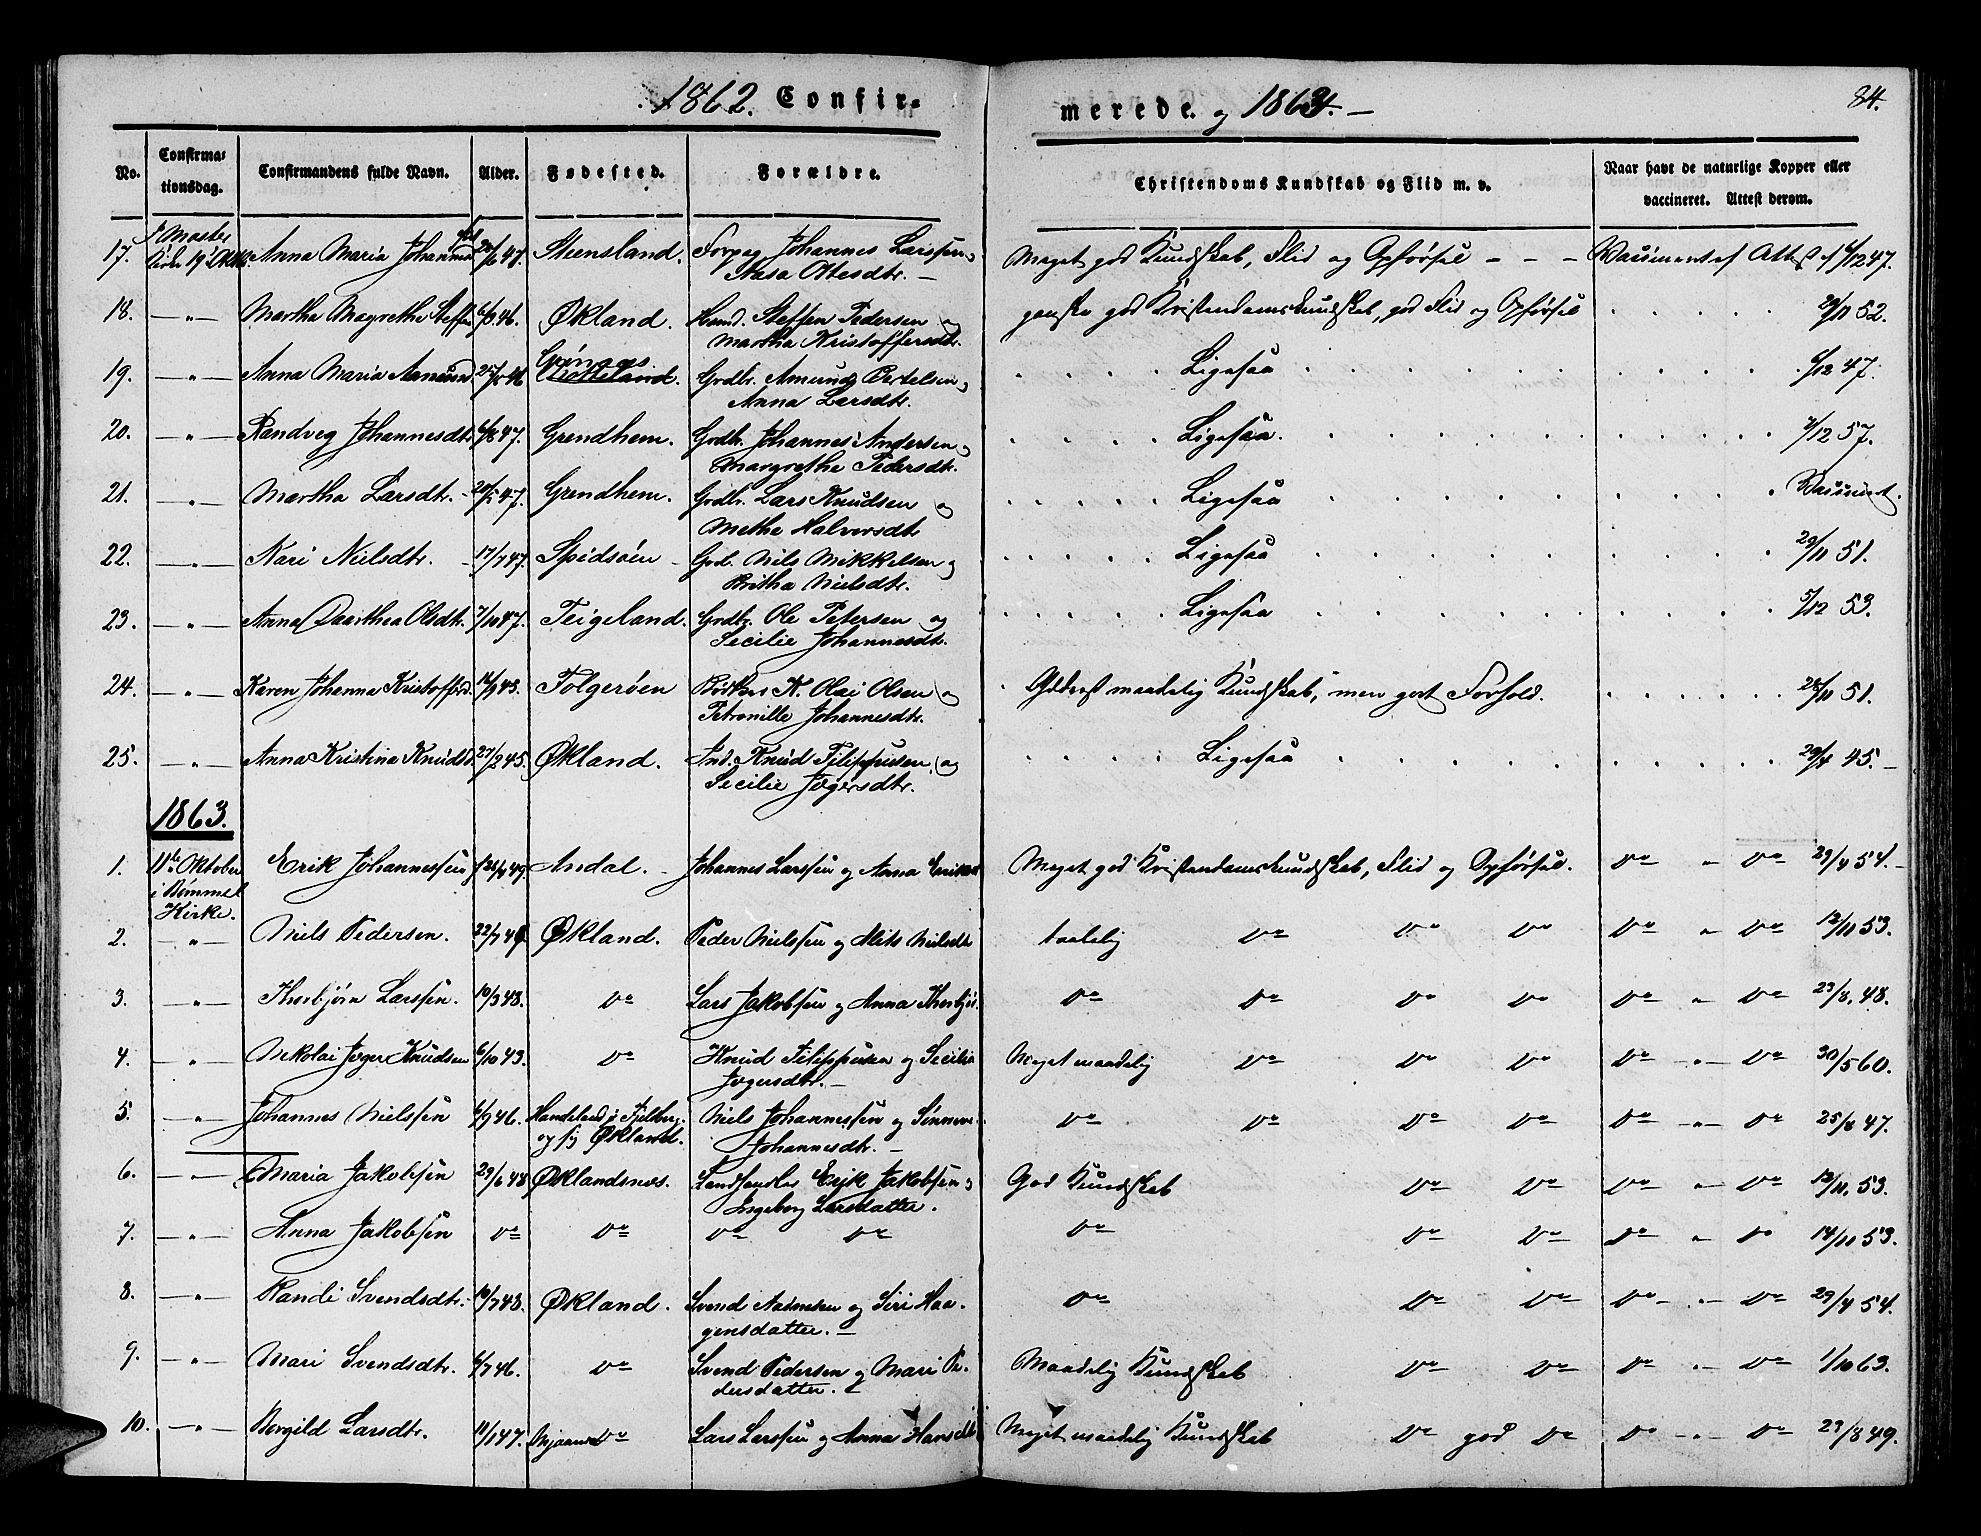 1862. Confir-
merede. og 1863. —
84.
No. Confirma-
tionsdag. Confirmandens fulde Navn. Alder. Fødested. Forældre. Christendoms Kundskab og Flid m. v. Naar havt de naturlige Kopper eller
vaccineret. Attest derom.
17. Anna Maria Johannes 47. Steensland. Johannes Larssen
Aasa Olesdtr. — Meget god Kundskab, Flid og Opførsel - - - Attest 1/12 47.
18. — " — Martha Magrethe Steffen 46. Økland. Steffen Pedersen og
Martha Kristoffersdtr. ganske god Kristendomskundskab, god Flid og Opførsel 29/11 52.
19. — " — Anna Maria Amund 46 Grb. Amund Bertelsen og
Anna Larsdtr. Ligesaa 6/12 47.
20. — " — Randveg Johannesdtr. 47. Grendhem. Grdbr. Johannes Andersen og
Margrethe Pedersdtr. Ligesaa. 7/12 57.
21. — " — Martha Larsdtr. 20/5 47. Grendhem. Grdbr. Lars Knudsen og
Methe Halvorsdtr Ligesaa
22. — " — Kari Nielsdtr. 17/7 47. Spidsøen Nils Mikkelsen og
Britha Nielsdtr. Ligesaa 29/11 51.
23. — " — Anna Dorthea Olsdtr. 7/10 47. Teigeland. Grdbr. Ole Petersen og
Secilie Johannesdtr. Ligesaa 5/12 53.
24. — " — Karen Johanna Kristoffersd. 45. Folgerøen Olai Olsen og
Petronille Johannesdtr. maadelig Kundskab, men godt Forhold. 28/11 51.
25. — " — Anna Kristina Knudsd. 27/2 45. Økland. Ind. Knud Filippusen og
Secilie Jøgersdtr. Ligesaa 29/4 45. —
1863.
1. 11te Oktober
i Bømmel
Kirke. Erik Johannessen 49. Andal. Johannes Larssen og Anna Eriks Meget god Kristendomskundskab, Flid og Opførsel. Do " Do 29/4 54. —
2. — " — Niels Pedersen. 22/7 4 Økland. Peder Nielssen og Nielsdtr taalelig Do Do Do Do " Do 12/11 53.
3. — " — Thorbjørn Larssen. 10/3 48. Do Lars Jakobsen og Anna Do Do Do Do Do " Do 23/8. 48.
4. — " — Nikolai Jøger Knudsen 6/10 43. Do Knud Filippusen og Secilia
Jøgersdtr. — Meget maadelig Do Do Do Do " Do 30/5 60.
5. — " — Johannes Nielssen 6/9 46. i Fjelberg
og fj Økland. Niels Johannessen og
Johannesdtr. — Do Do Do Do Do " Do 25/8 47.
6. — " — Maria Jakobsen 29/6 48 Øklandsnes. Landhandler Erik Jakobsen og
Ingeborg Larsdatter. God Kundskab Do Do Do " Do 12/11. 53.
7. — " — Anna Jakobsen Do Do Do Do Do Do Do Do " Do 14/11 53.
8. — " — Randi Svendsdtr. 10/7 48. Økland. Svend og Siri Haa-
gensdatter. — Do Do Do Do " Do 29/4 54.
9. — " — Mari Svendsdtr. 6/7 46. Do Svend Pedersen og Mari Pe-
dersdatter. Maadelig Kundskab Do Do Do " Do 1/10 63.
10. — " — Borgild Larsdtr. 11/1 47. Do Lars Larssen og Anna Hansdtr Meget maadelig Kundskab Do god Do Do " Do 23/8 49.